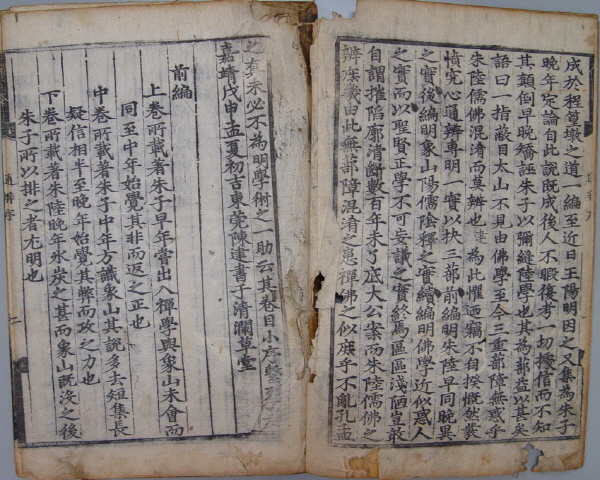 成於程篁墩之道一編至近日王陽明因之又集為朱子
晚年定論自此說既成後人不暇復考一切據信而不知
其顛倒早晚矯誣朱子以彌縫陸學也其為蔀益以甚矣
語曰一指蔽目太山不見由佛學至今三重蔀障無惑乎
朱陸儒佛混淆而莫辨也建為此懼迺竊不自揆慨然發
憤究心通辨專明一實以抉三蔀前編明朱陸早同晚異
之實後編明象山陽儒陰釋之實續編明佛學近似惑人
之實而以聖賢正學不可妄議之實終焉區區淺陋豈敢
自謂摧陷廓清斷數百年未了底大公案而朱陸儒佛之
辨庶幾由此無蔀障混淆之患禪佛之似庶乎不亂孔孟
之真未必不為明學術之一助云其卷目小序
嘉靖戊申孟夏初吉東莞陳建書于清瀾草堂
前編
上卷所載著朱子早年嘗出入禪學與象山未會而
同至中年始覺其非而返之正也
中卷所載著朱子中年方識象山其說多去短集長
疑信相半至晚年始覺其弊而攻之力也
下卷所載著朱陸晚年氷炭之甚而象山既沒之後
朱子所以排之者尤明也